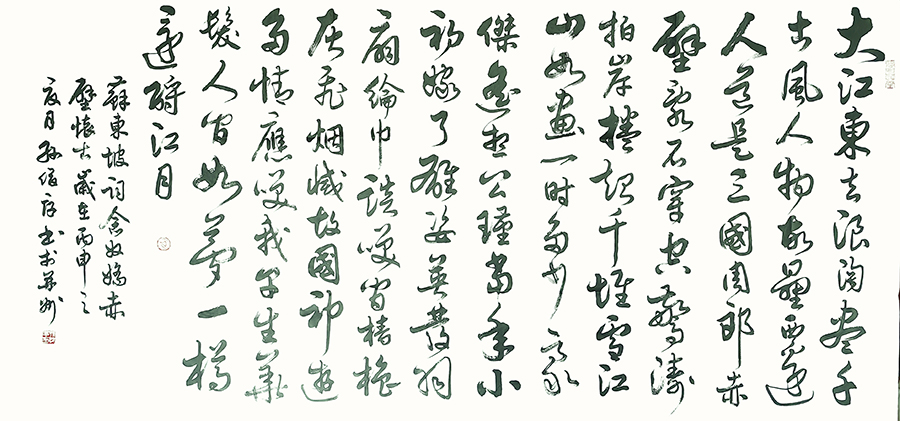 大江東去浪淘盡千
古風人物故壘西邊
人道是三國周郎赤
壁亂石穿空驚濤
拍岸捲起千堆雪江
山如畫一時多少豪
傑遙想公瑾當年小
初嫁了雄姿英發羽
扇綸巾談笑間檣櫓
灰飛烟滅故國神遊
多情應笑我早生華
髮人間如夢一樽
還酹江月
蘇東坡詞念奴嬌赤
壁懷古歲在丙申之
夏月孫書於并州